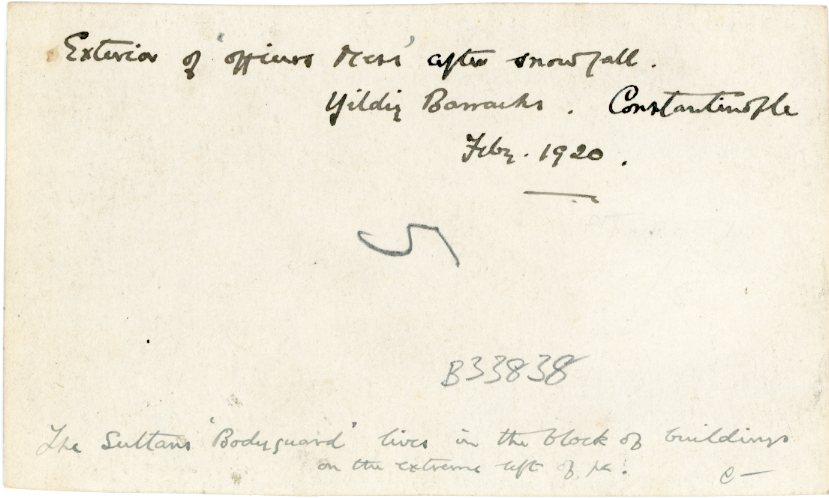 Exterior of 'officers Mess' after snowfall.
Yildiz Barracks. Constantinople
Feby. 1920.
B33838
The Sultans 'Bodyguard' lives in the block of buildings
on the extreme left of